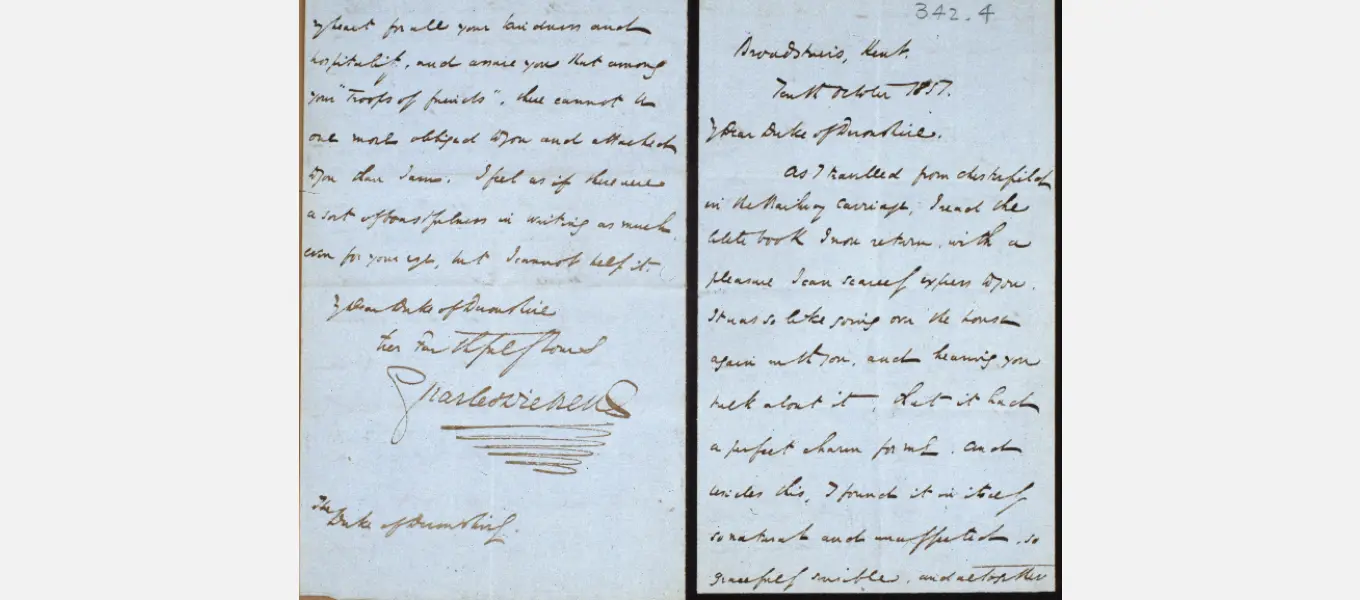 342.4
Broadstairs, Kent.
Tenth October 1851.
My Dear Duke of Devonshire.
As I travelled from Chesterfield
in the Railway Carriage, I read the
little book I now return, with a
pleasure I can scarcely express to you.
It was so like going over the house
again with you, and hearing you
talk about it, that it had
a perfect charm for me. And
besides this, I found it in itself
so natural and unaffected, so
gracefully sensible, and altogether
my heart for all your kindness and
hospitality, and assure you that among
your "troops of friends", there cannot be
one more obliged to you and attached
to you than I am. I feel as if there were
a sort of boastfulness in writing as much,
even for your eye, but I cannot help it.
My Dear Duke of Devonshire
Ever Faithfully Yours
Charles Dickens
The
Duke of Devonshire.